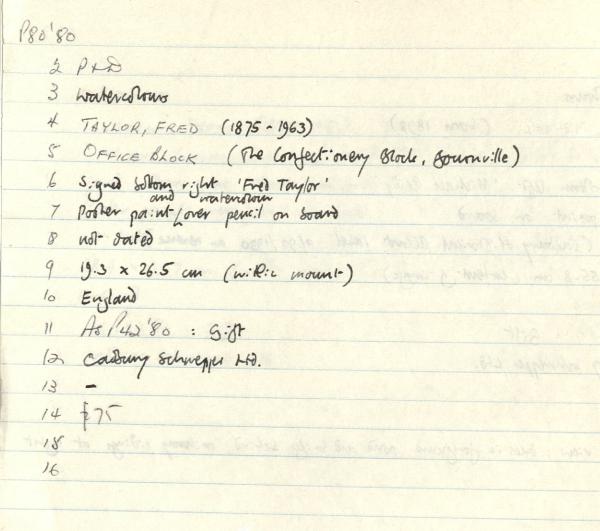 P80'80
2 P+D
3 watercolours
4 TAYLOR, FRED (1875-1963)
5 OFFICE BLOCK (The Confectionery Block, Bournville)
6 Signed bottom right 'Fred Taylor'
and watercolour
7 Poster paint / over pencil on board
8 not dated
9 19.3 x 26.5 cm (within mount)
10 England
11 As P42'80 : Gift
12 Cadbury Schweppes Ltd.
13 -
14 £75
15
16